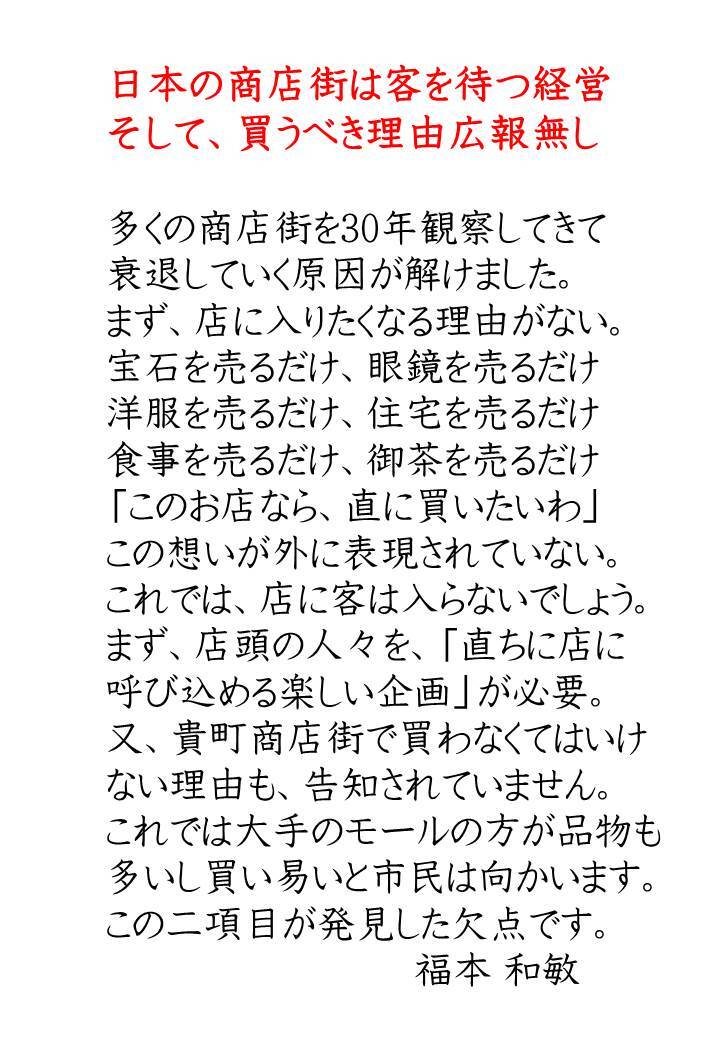 日本の商店街は客を待つ経営
そして、買うべき理由広報無し
多くの商店街を30年観察してきて
衰退していく原因が解けました。
まず、店に入りたくなる理由がない。
宝石を売るだけ、眼鏡を売るだけ
洋服を売るだけ、住宅を売るだけ
食事を売るだけ、御茶を売るだけ
「このお店なら、直に買いたいわ」
この想いが外に表現されていない。
これでは、店に客は入らないでしょう。
まず、店頭の人々を、「直ちに店に
呼び込める楽しい企画」が必要。
又、貴町商店街で買わなくてはいけ
ない理由も、告知されていません。
これでは大手のモールの方が品物も
多いし買い易いと市民は向かいます。
この二項目が発見した欠点です。
福本 和敏